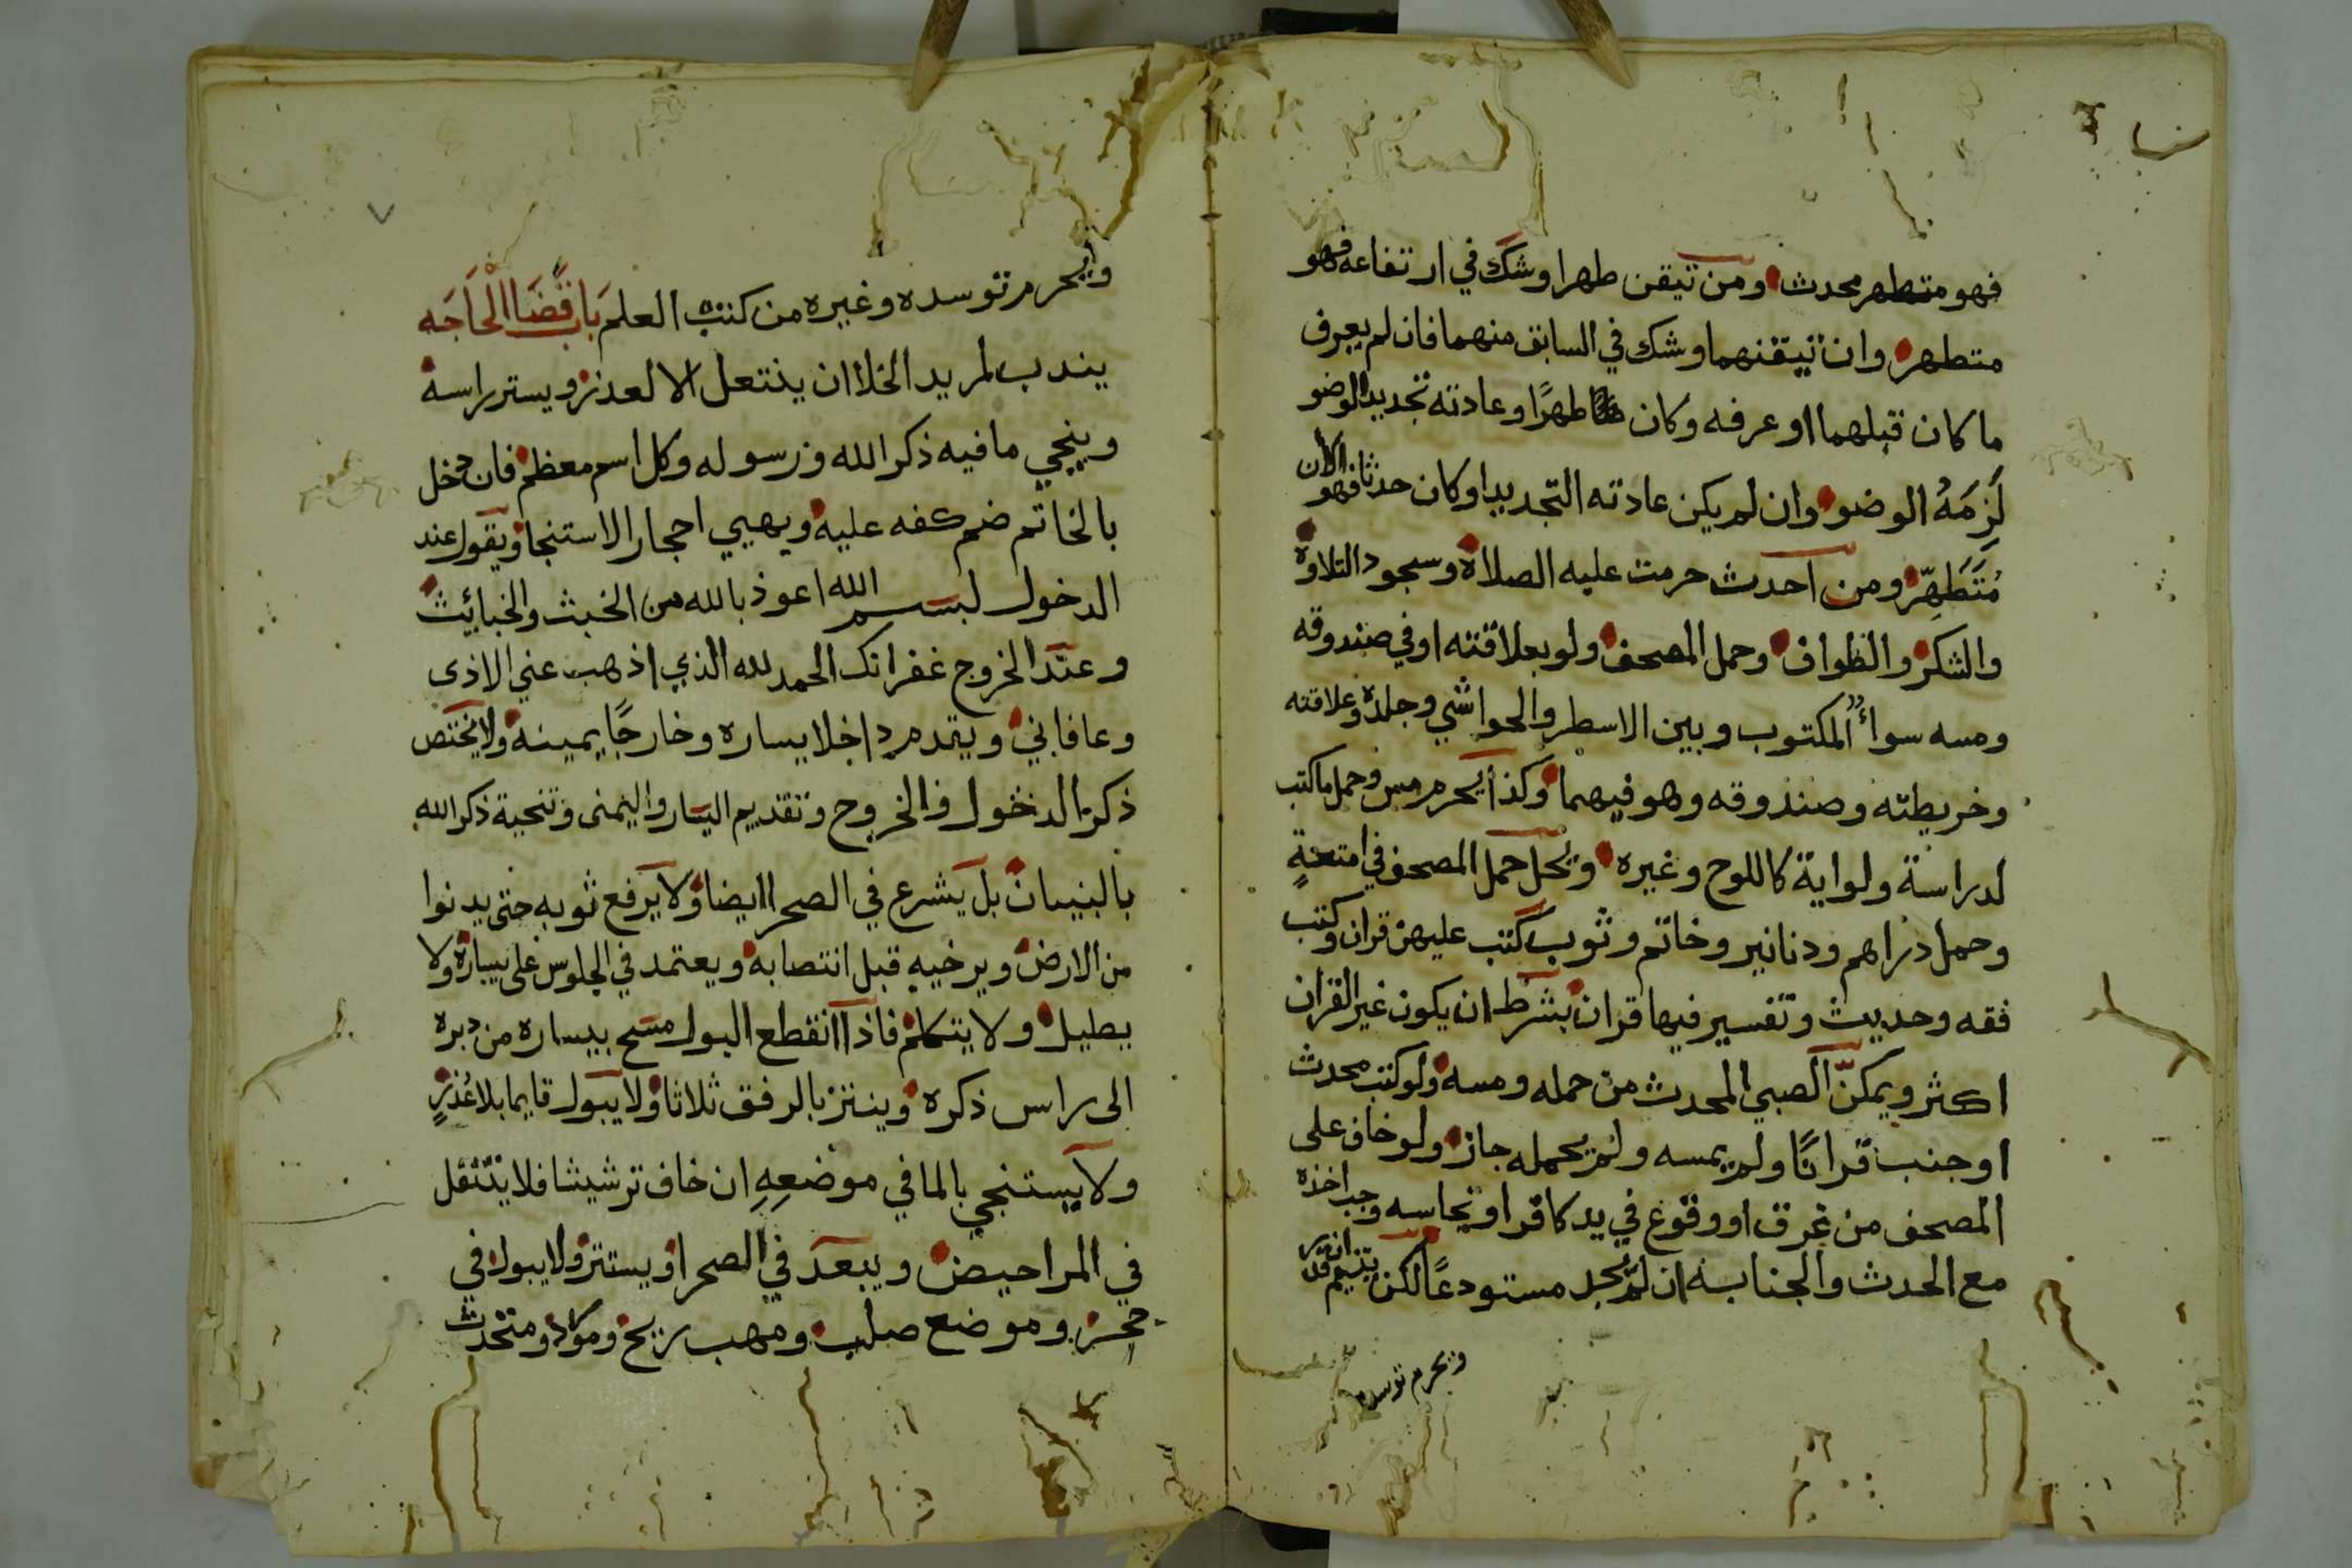 فهو متطهر محدث ومن تيقن طهرا وشك في ارتفاعه فهو
متطهر وان تيقنهما وشك في السابق منهما فان لم يعرف
ما كان قبلهما او عرفه وكان طهرًا وعادته تجديد الوضو
لَزِمَهُ الوضو وان لم يكن عادته التجديد او كان حدثا فهو الان
مُتَطَهِّر ومن احدث حرمت عليه الصلاة وسجود التلاوة
والشكر والطواف وحمل المصحف ولو بعلاقته او في صندوقه
ومسه سواء المكتوب وبين الاسطر والحواشي وجلده وعلاقته
وخريطته وصندوقه وهو فيهما وكذا يحرم مس وحمل ما كتب
لدراسة ولواية كاللوح وغيره ويحل حمل المصحف في امتعةٍ
وحمل دراهم ودنانير وخاتم وثوب كتب عليهن قران وكتب
فقه وحديث وتفسير فيها قران بشرط ان يكون غير القران
اكثر ويمكّن الصبي المحدث من حمله ومسه ولو كتب محدث
او جنب قرانًا ولم يمسه ولم يحمله جاز ولو خاف على
المصحف من غرق او وقوع في يد كافر او نجاسه وجب اخذه
مع الحدث والجنابه ان لم يجد مستودعًا لكن يتيمم ان قدر
ويحرم توسده
ويحرم توسده وغيره من كتب العلم بَاب قَضَا الْحَاجَه
يندب لمريد الخلا ان ينتعل الا لعذر ويستر راسه
وينحي ما فيه ذكر الله ورسوله وكل اسم معظم فان دخل
بالخاتم ضم كفه عليه ويهيي احجار الاستنجا ويقول عند
الدخول لبسم الله اعوذ بالله من الخبث والخبائيث
وعند الخروج غفرانك الحمد لله الذي اذهب عني الاذى
وعافاني ويقدم داخلا يساره وخارجًا يمينه ولا يختص
ذكر الدخول والخروج وتقديم اليسار واليمنى وتنحية ذكر الله
بالبنيان بل يشرع في الصحرا ايضا ولا يرفع ثوبه حتى يدنوا
من الارض ويرخيه قبل انتصابه ويعتمد في الجلوس على يساره ولا
يطيل ولا يتكلم فاذا انقطع البول مسح بيساره من دبره
الى راس ذكره وينتر بالرفق ثلاثا ولا يبول قايما بلا عُذرٍ
ولا يستنجي بالما في موضعِهِ ان خاف ترشيشا فلا ينتقل
في المراحيض ويبعد في الصحرا ويستتر ولا يبول في
حجر وموضع صلب ومهب ريح ومورد ومتحدث